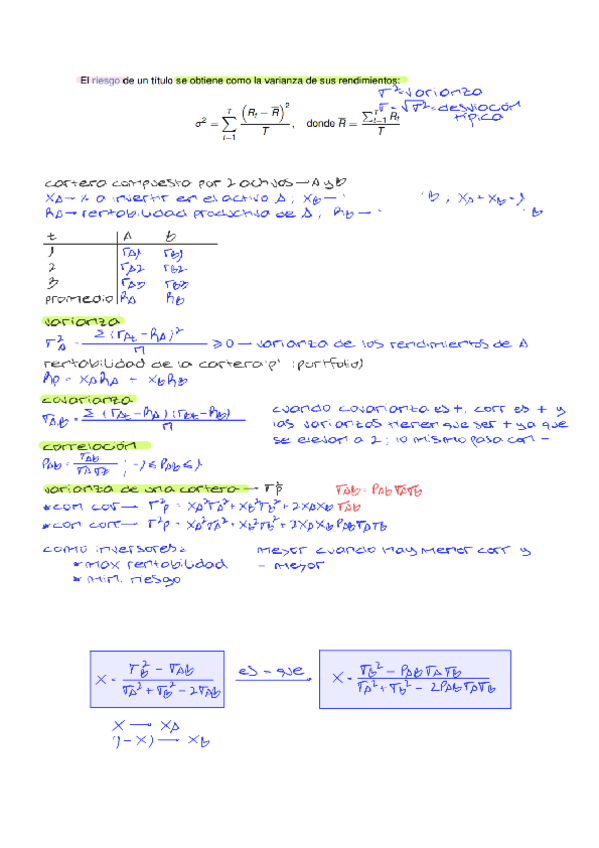 El riesgo de un título se obtiene como la varianza de sus rendimientos:
σ² = varianza
σ = √σ² = desviación típica
σ² = Σ_{i=1}^{T} (R_t − R̄)² / T, donde R̄ = Σ_{t=1}^{T} R_t / T
cartera compuesta por 2 activos → A y B
X_A → % a invertir en el activo A ; X_B → " B ; X_A + X_B = 1
R_A → rentabilidad productiva de A ; R_B → " B
t A B
1 r_A1 r_B1
2 r_A2 r_B2
3 r_A3 r_B3
promedio R_A R_B
varianza
σ²_A = Σ (r_At − R_A)² / n ≥ 0 → varianza de los rendimientos de A
rentabilidad de la cartera 'p' (portfolio)
R_p = X_A R_A + X_B R_B
covarianza
σ_A,B = Σ (r_At − R_A) (r_Bt − R_B) / n
cuando covarianza es +, corr es + y
las varianzas tienen que ser + ya que
se elevan a 2; lo mismo pasa con −
correlación
ρ_AB = σ_AB / σ_A σ_B ; −1 ≤ ρ_AB ≤ 1
varianza de una cartera → σ²_p σ_AB = ρ_AB σ_A σ_B
* con cov → σ²_p = X_A² σ_A² + X_B² σ_B² + 2 X_A X_B σ_AB
* con corr → σ²_p = X_A² σ_A² + X_B² σ_B² + 2 X_A X_B ρ_AB σ_A σ_B
como inversores:
* max rentabilidad
* min. riesgo
mejor cuando hay menor corr y
− mejor
X = σ_B² − σ_AB / σ_A² + σ_B² − 2σ_AB es = que X = σ_B² − ρ_AB σ_A σ_B / σ_A² + σ_B² − 2ρ_AB σ_A σ_B
X → X_A
(1 − X) → X_B